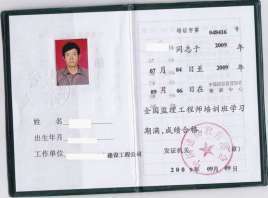 姓名
出生年月
工作单位 建设工程公司
培证字第 040416 号
同志于 2009 年
07 月 04 日至 2009 年
09 月 06 日在
全国监理工程师培训班学习
期满,成绩合格。
发证机关 (章)
2009 年 09 月 09 日